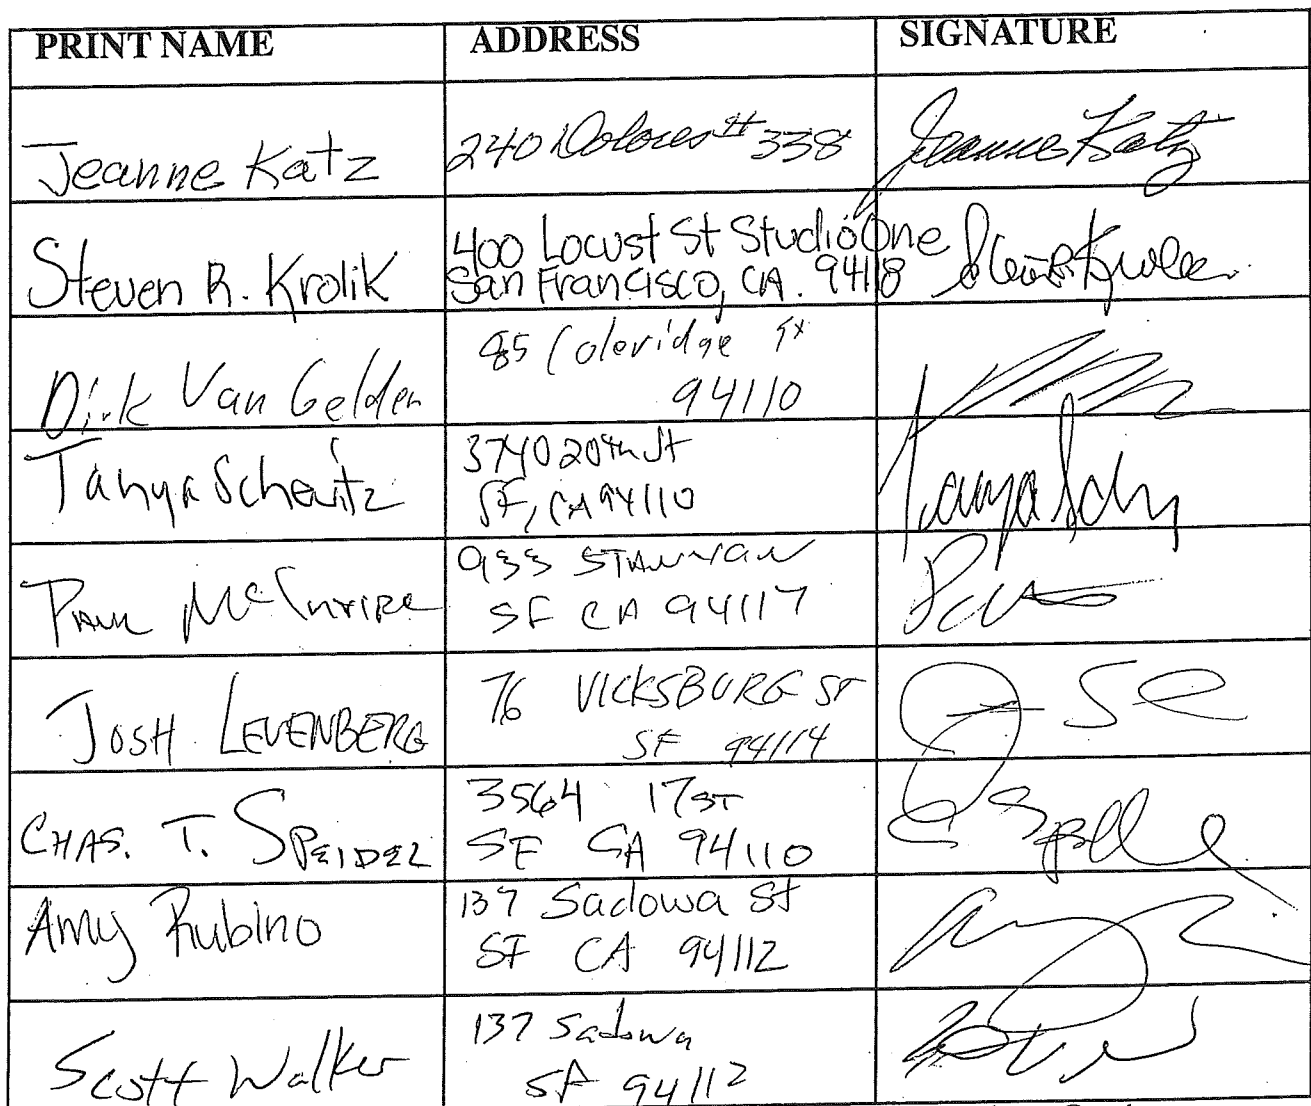 PRINT NAME ADDRESS SIGNATURE
Jeanne Katz 240 Dolores # 338 Jeanne Katz
Steven R. Krolik 400 Locust St Studio One
San Francisco, CA. 94118
Dirk Van Gelder 85 Coleridge St
94110
Tanya Schevitz 3740 20th St
SF, CA 94110
Paul McIntire 933 STANYAN
SF CA 94117
JOSH LEVENBERG 76 VICKSBURG ST
SF 94114
CHAS. T. SPEIDEL 3564 17ST
SF CA 94110
Amy Rubino 137 Sadowa St
SF CA 94112
Scott Walker 137 Sadowa
SF 94112